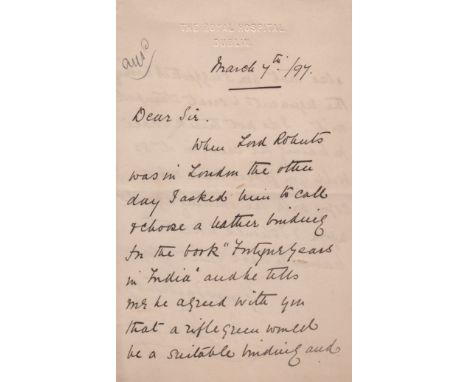 THE ROYAL HOSPITAL
DUBLIN.
ansd
March 7th/97.
Dear Sir.
When Lord Roberts
was in London the other
day I asked him to call
& choose a leather binding
for the book "Fortyone Years
in India" and he tells
me he agreed with you
that a rifle green would
be a suitable binding and